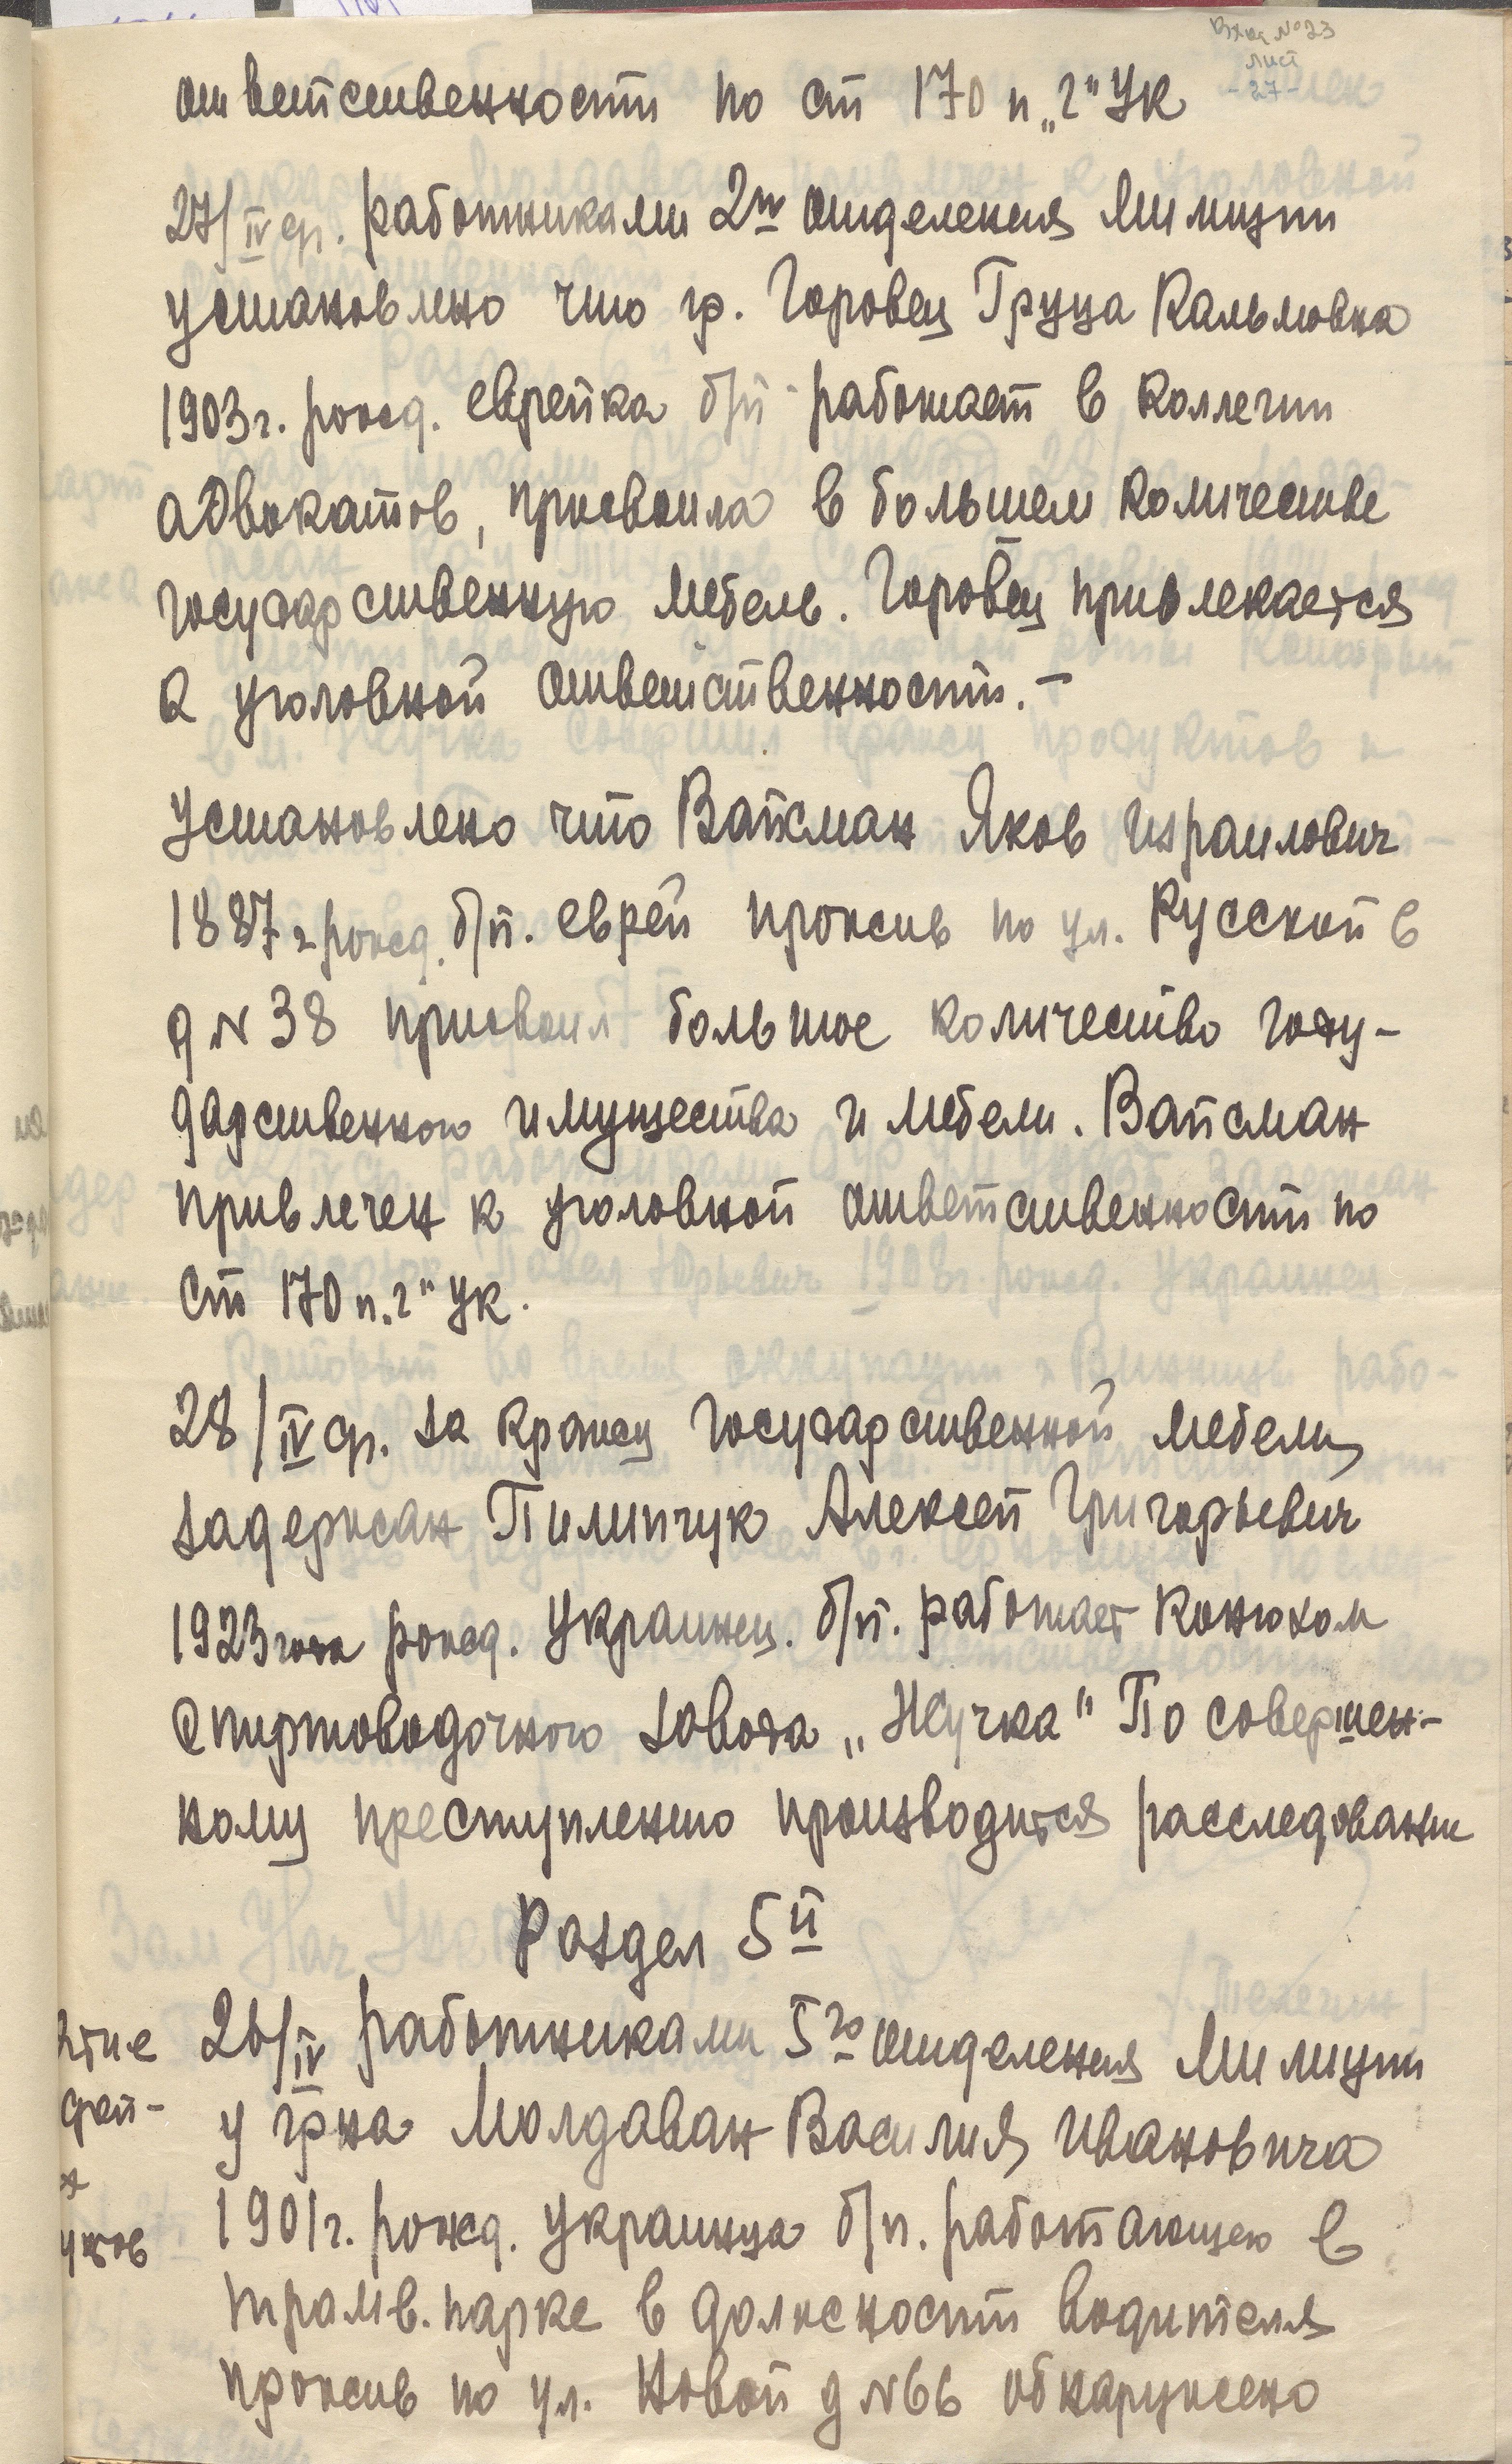 Вход №23
лист
-27-
ответственности по ст 170 п „г" УК
27/IV ср. работниками 2го отделения Милиции
установлено что гр. Горовец Груца Кальмовна
1903г. рожд. еврейка б/п работает в Коллегии
адвокатов, присвоила в большем количестве
государственную мебель. Горовец привлекается
к уголовной ответственности.-
Установлено что Вайсман Яков Израилович
1887г рожд. б/п. еврей прожив по ул. Русской в
д N 38 присвоил большое количество госу-
дарственного имущества и мебели. Вайсман
привлечен к уголовной ответственности по
ст 170 п „г" УК.
28/IV ср. за кражу государственной мебели
задержан Пилипчук Алексей Григорьевич
1923 года рожд. Украинец. б/п. работает конюхом
Спиртоводочного завода „Жучка" По совершен-
ному преступлению производится расследование
Раздел 5й
26/IV работниками 5го отделения Милиции
у гр-на Молдаван Василия Ивановича
1901г. рожд. украинца б/п. работающего в
трамв. парке в должности водителя
прожив по ул. Новой д N66 обнаружено